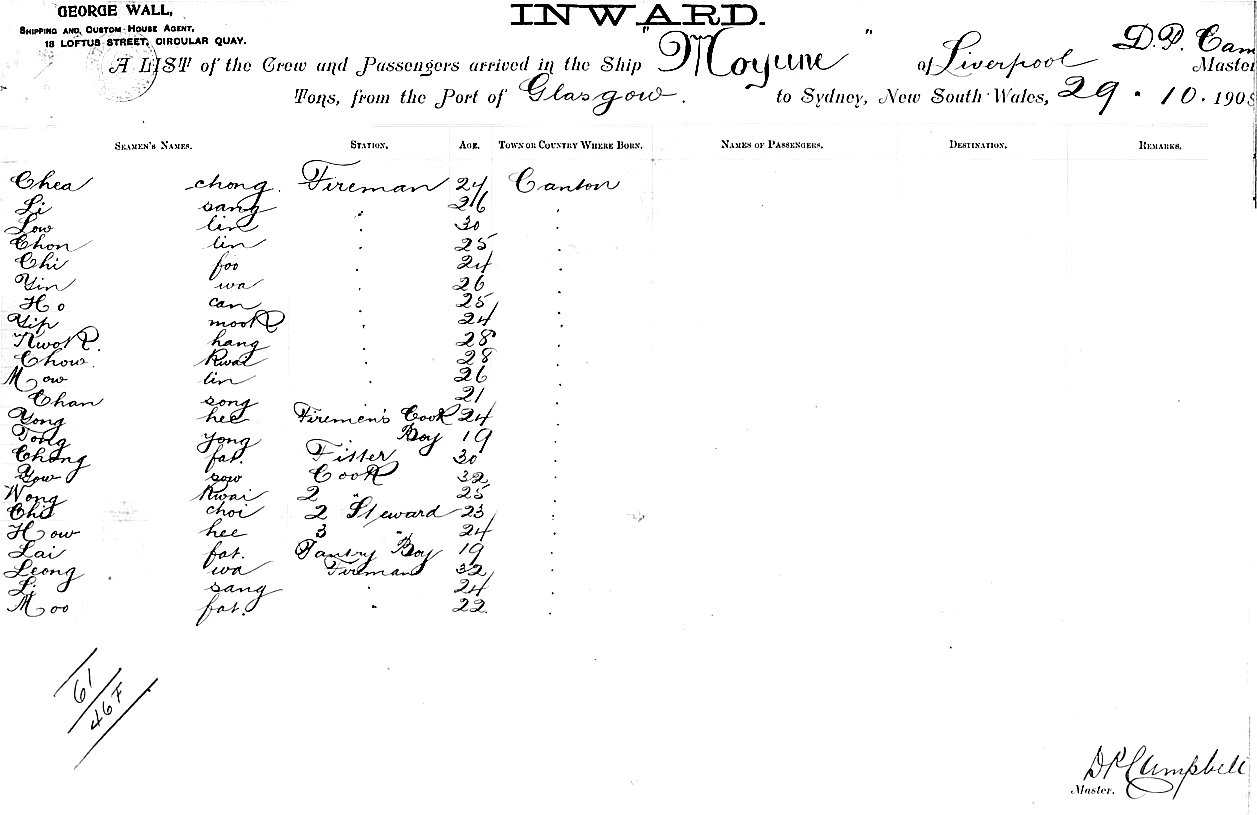 GEORGE WALL,
SHIPPING AND CUSTOM HOUSE AGENT,
18 LOFTUS STREET, CIRCULAR QUAY.
INWARD.
D. P. Cam
A LIST of the Crew and Passengers arrived in the Ship "Moyune" of Liverpool Master
Tons, from the Port of Glasgow. to Sydney, New South Wales, 29 . 10 . 1908
SEAMEN'S NAMES. STATION. AGE. TOWN OR COUNTRY WHERE BORN. NAMES OF PASSENGERS. DESTINATION. REMARKS.
Chea chong. Fireman 24 Canton
Li sang " 26 "
Low lin " 30 "
Chon lin " 25 "
Chi foo " 24 "
Yin wa " 26 "
Ho can " 25 "
Yip mook " 24 "
Kwok hang " 28 "
Chow Kwai " 28 "
Mow lin " 26 "
Chan song " 21 "
Yong hee Firemen's Cook 24 "
Tong yong Boy 19 "
Chong fat. Fitter 30 "
Yow sow Cook 32 "
Wong Kwai 2 " 25 "
Chi choi 2 Steward 23 "
How hee 3 " 24 "
Lai fat. Pantry Boy 19 "
Leong wa Fireman 32 "
Li sang " 24 "
Moo fat. " 22 "
61
46 F
D P Campbell
Master.